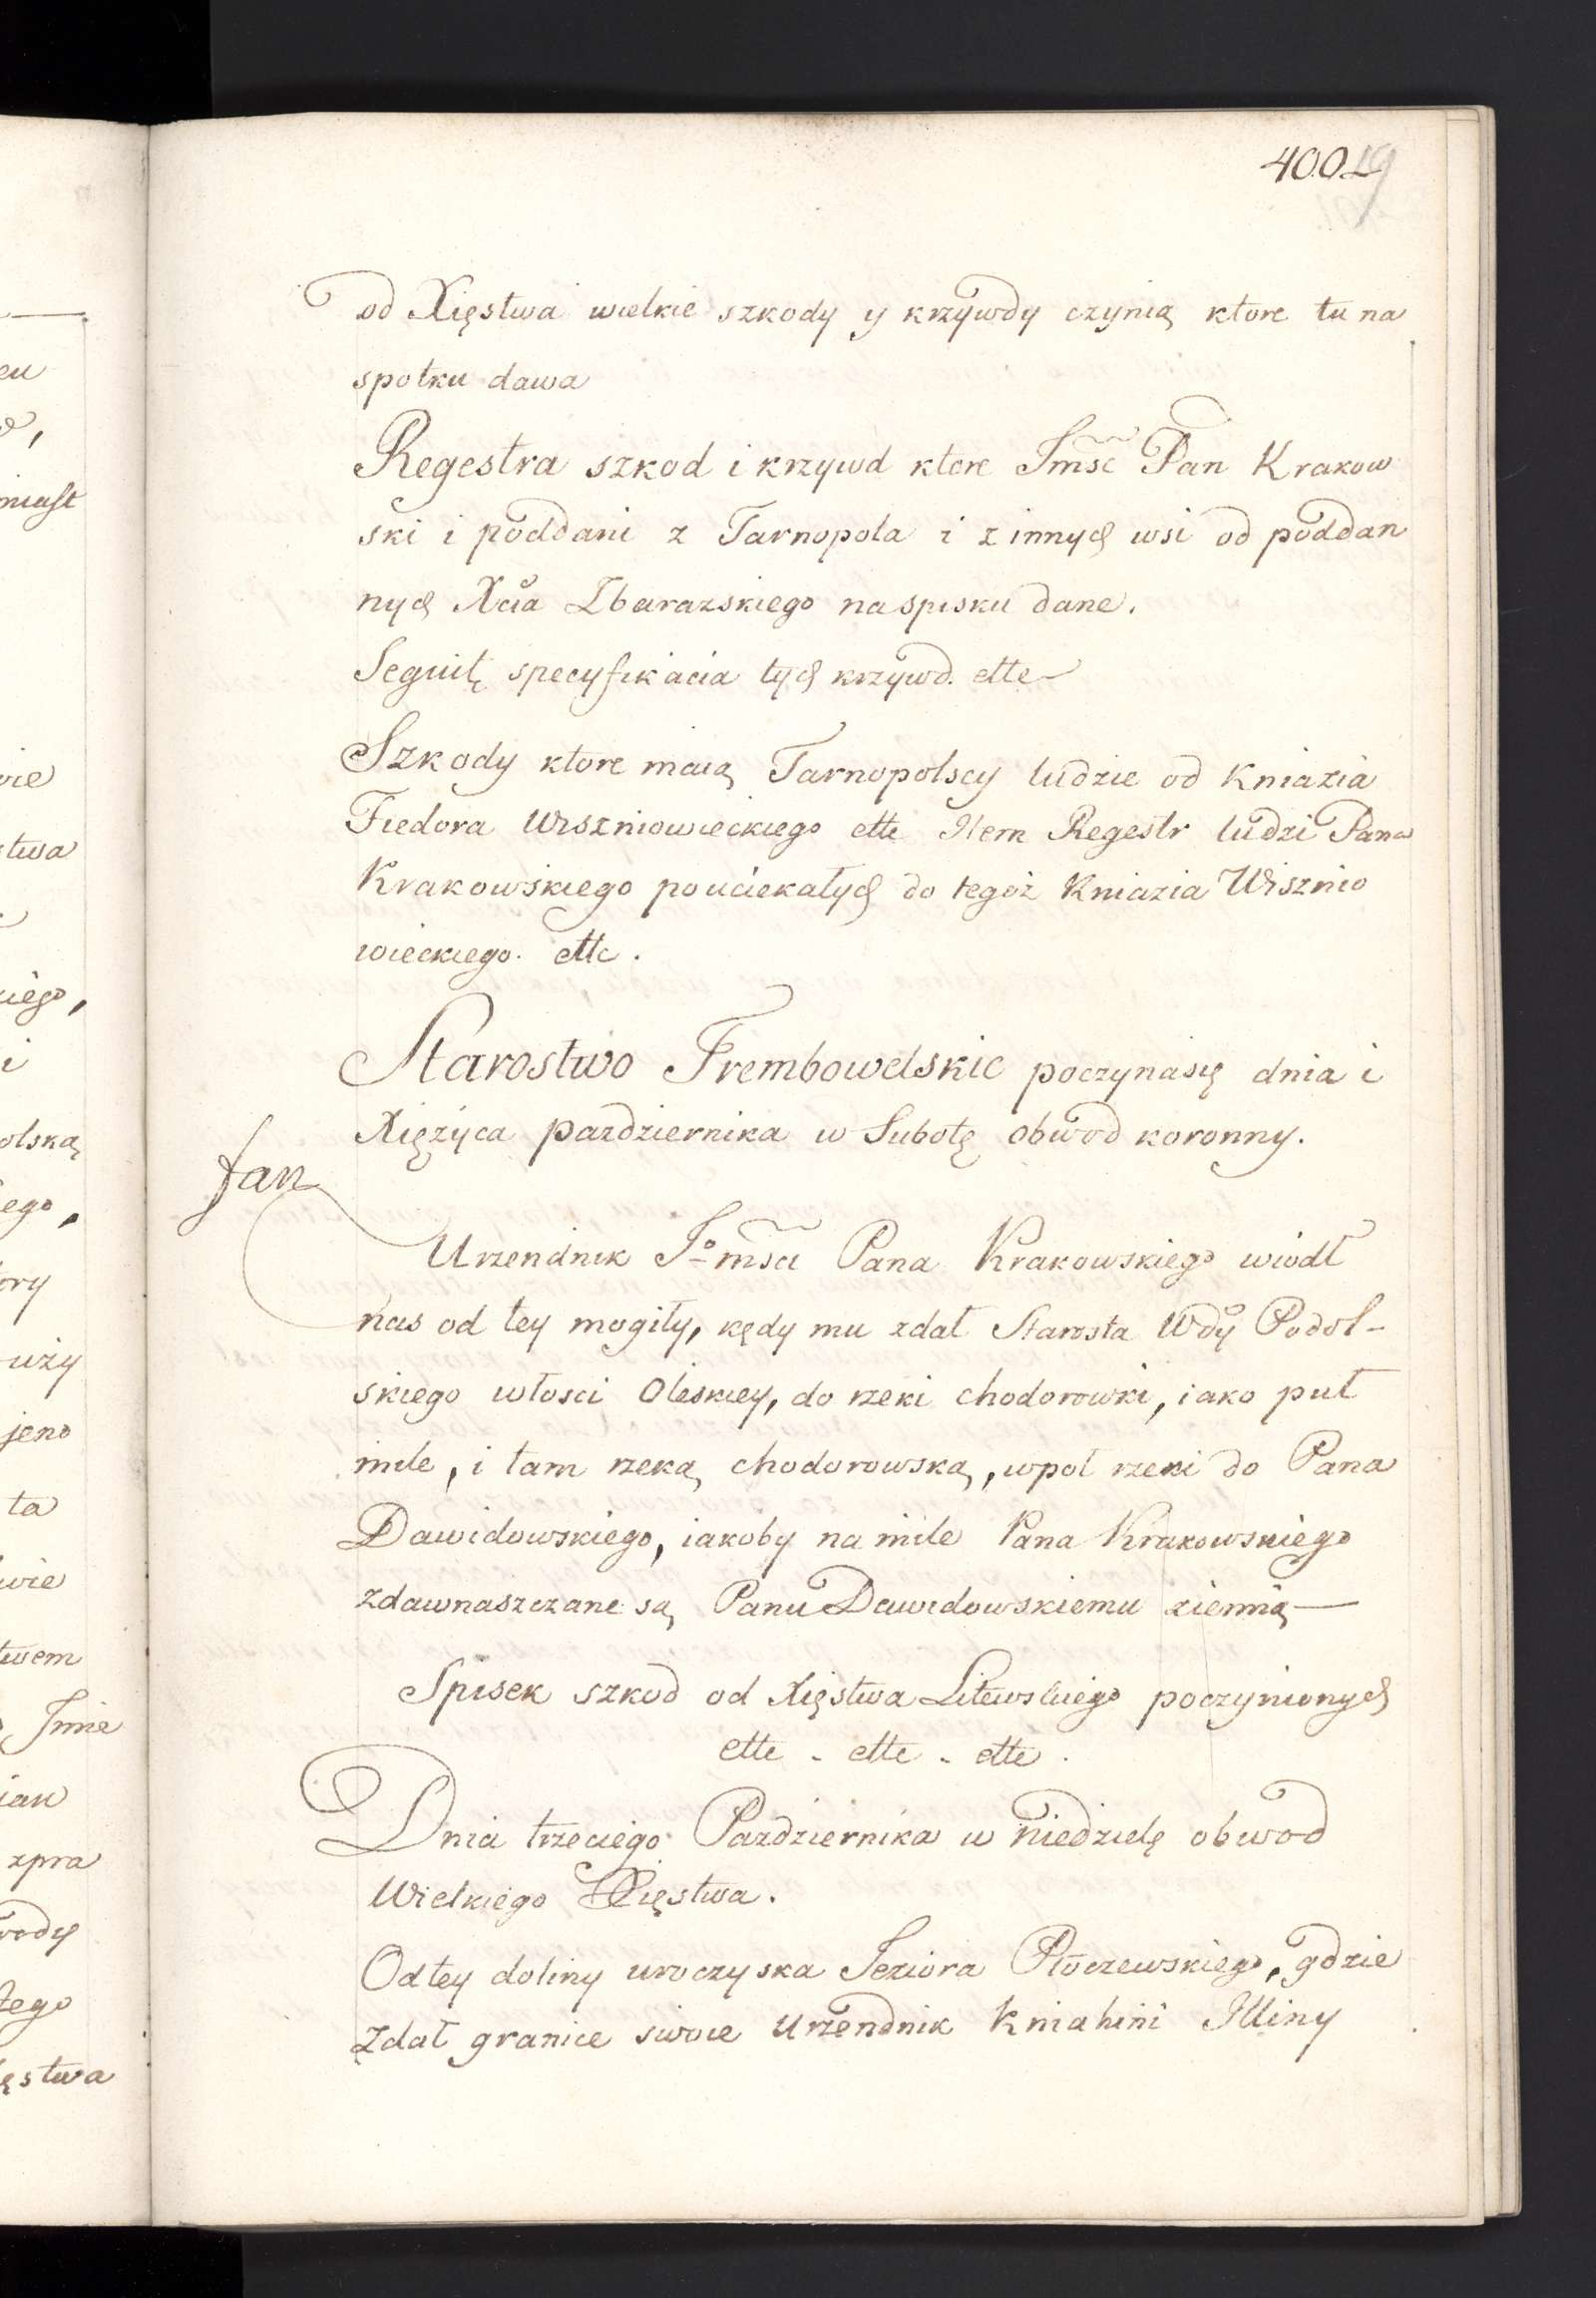 400. 19
od Xięstwa wielkie szkody y krzywdy czynią ktore tu na
społku dawa
Regestra szkod i krzywd ktore Jmsc Pan Krakow
ski i poddani z Tarnopola i z innych wsi od poddan
nych Xcia Zbarazskiego na spisku dane.
Seguitę specyfikacia tych krzywd. ette
Szkody ktore maią Tarnopolscy ludzie od Kniazia
Fiedora Wiszniowieckiego ette Item Regestr ludzi Pana
Krakowskiego pouciekałych do tegoż Kniazia Wisznio
wieckiego. ettc.
Starostwo Trembowelskie poczynasię dnia i
Xiężyca pazdziernika w Subotę obwod koronny.
fan
Urzendnik Jomsci Pana Krakowskiego wiodł
nas od tey mogiły, kędy mu zdał Starosta Wdy Podol-
skiego włosci Oleskiey, do rzeki chodorowki, iako puł
mile, i tam rzeką chodorowską, wpoł rzeki do Pana
Dawidowskiego, iakoby na mile Pana Krakowskiego
zdawnaszczane są Panu Dawidowskiemu ziemią
Spisek szkod od Xięstwa Litewskiego poczynionych
ette - ette - ette.
Dnia trzeciego Pazdziernika w niedzielę obwod
Wielkiego Xięstwa.
Od tey doliny uroczyska Jeziora Płoczewskiego, gdzie
zdał granice swoie Urzendnik Kniahini Illiny